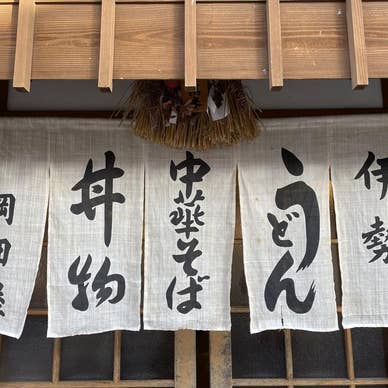 伊勢
うどん
中華そば
丼物
岡田